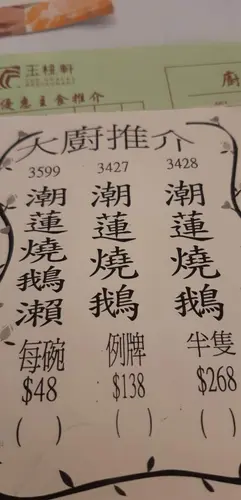 王樹軒
優惠主食推介
廚
大廚推介
3599 3427 3428
潮蓮燒鵝瀨 潮蓮燒鵝 潮蓮燒鵝
每碗 例牌 半隻
$48 $138 $268
( ) ( ) ( )